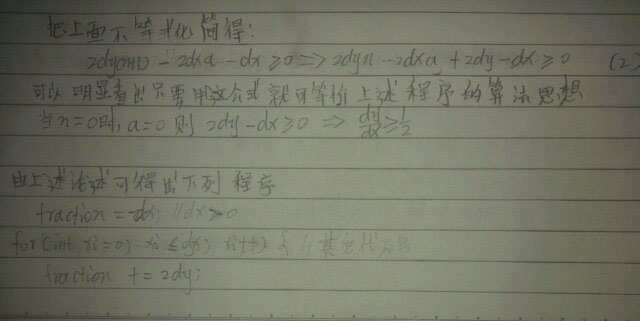 把上面不等式化简得:
2dy(n+1) - 2dxa - dx ≥ 0 => 2dyn - 2dxa + 2dy - dx ≥ 0 (2)
可以明显看出只要用这公式就可等价上述程序的算法思想
当n=0时, a=0 则 2dy - dx ≥ 0 => dy/dx ≥ 1/2
由上述论述可得出下列程序
fraction = -dx; // dx > 0
for (int xi = 0; xi ≤ dx; xi++) { //
fraction += 2dy;